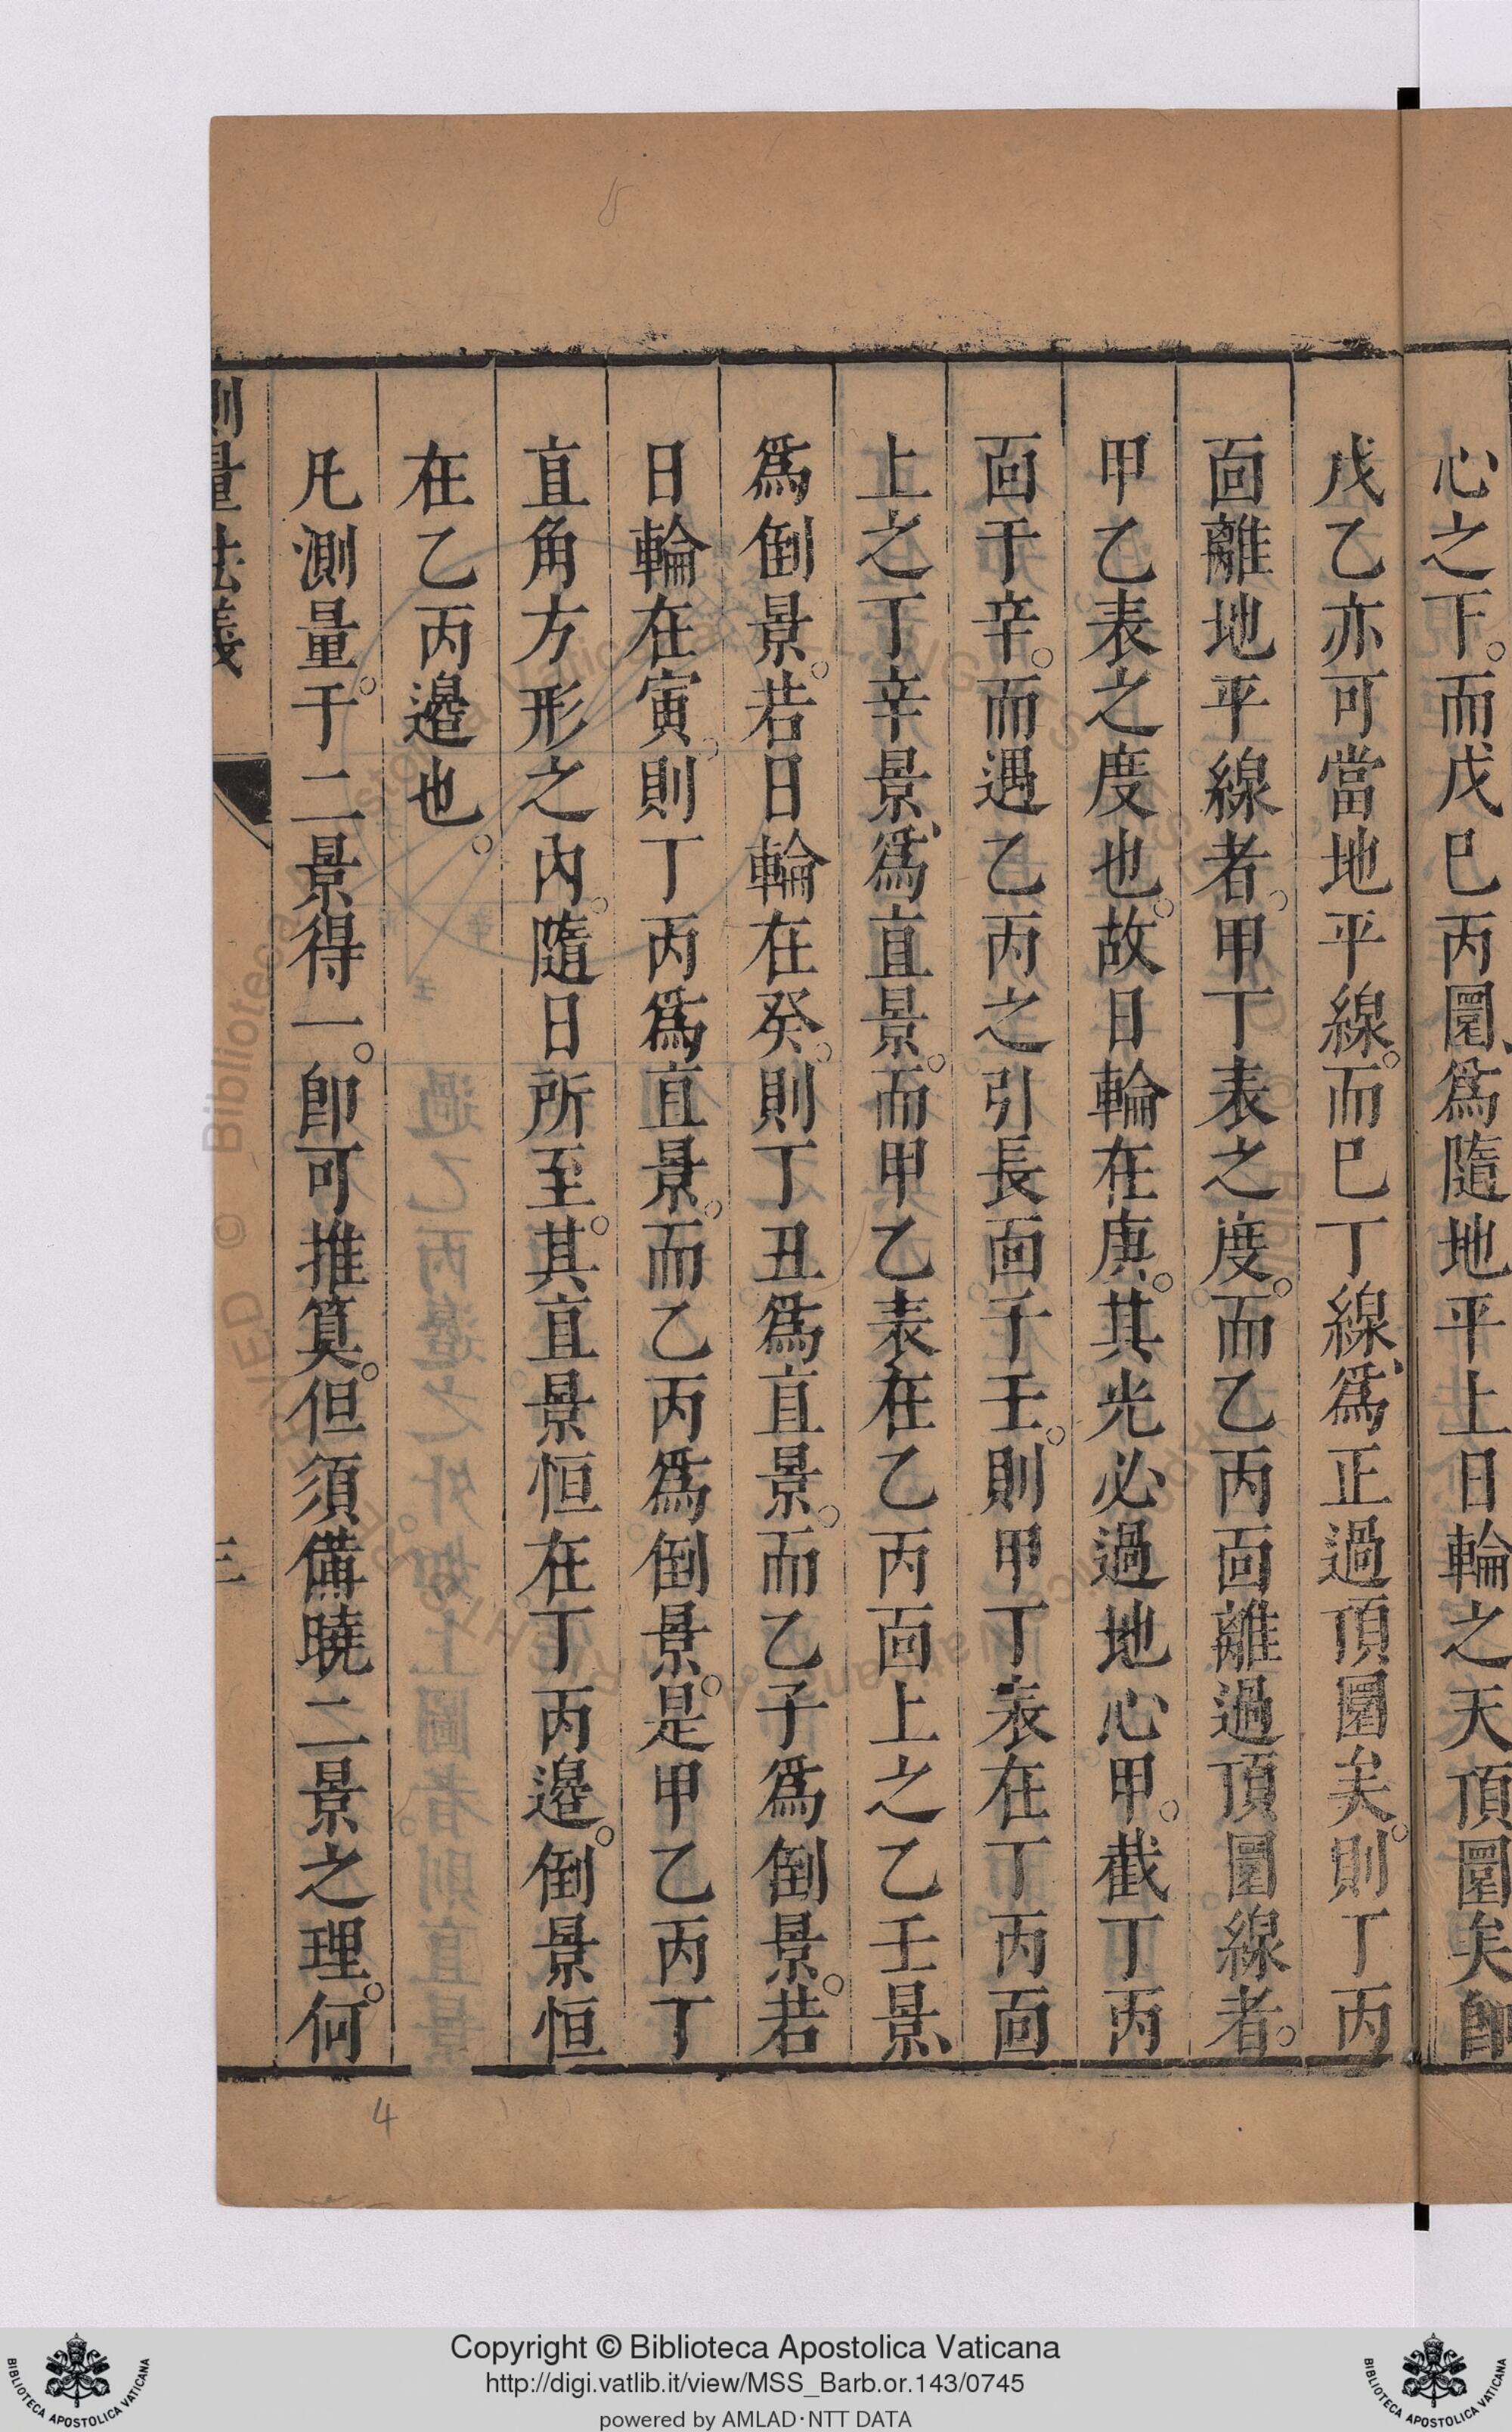 心之下。而戊巳丙圜、爲隨地平上日輪之天頂圜矣卽
戊乙亦可當地平線。而巳丁線、爲正過頂圜矣。則丁丙
面離地平線者。甲丁表之度。而乙丙面離過頂圜線者。
甲乙表之度也。故日輪在庚。其光必過地心甲。截丁丙
面于辛。而遇乙丙之引長面于壬。則甲丁表在丁丙面
上之丁辛景、爲直景。而甲乙表在乙丙面上之乙壬景、
爲倒景。若日輪在癸。則丁丑爲直景。而乙子爲倒景。若
日輪在寅。則丁丙爲直景。而乙丙爲倒景。是甲乙丙丁
直角方形之內。隨日所至。其直景恒在丁丙邊。倒景恒
在乙丙邊也。
凡測量。于二景得一。卽可推算。但須備曉二景之理。何
測量法義
三
4
Copyright © Biblioteca Apostolica Vaticana
http://digi.vatlib.it/view/MSS_Barb.or.143/0745
powered by AMLAD·NTT DATA
BIBLIOTECA APOSTOLICA VATICANA
BIBLIOTECA APOSTOLICA VATICANA